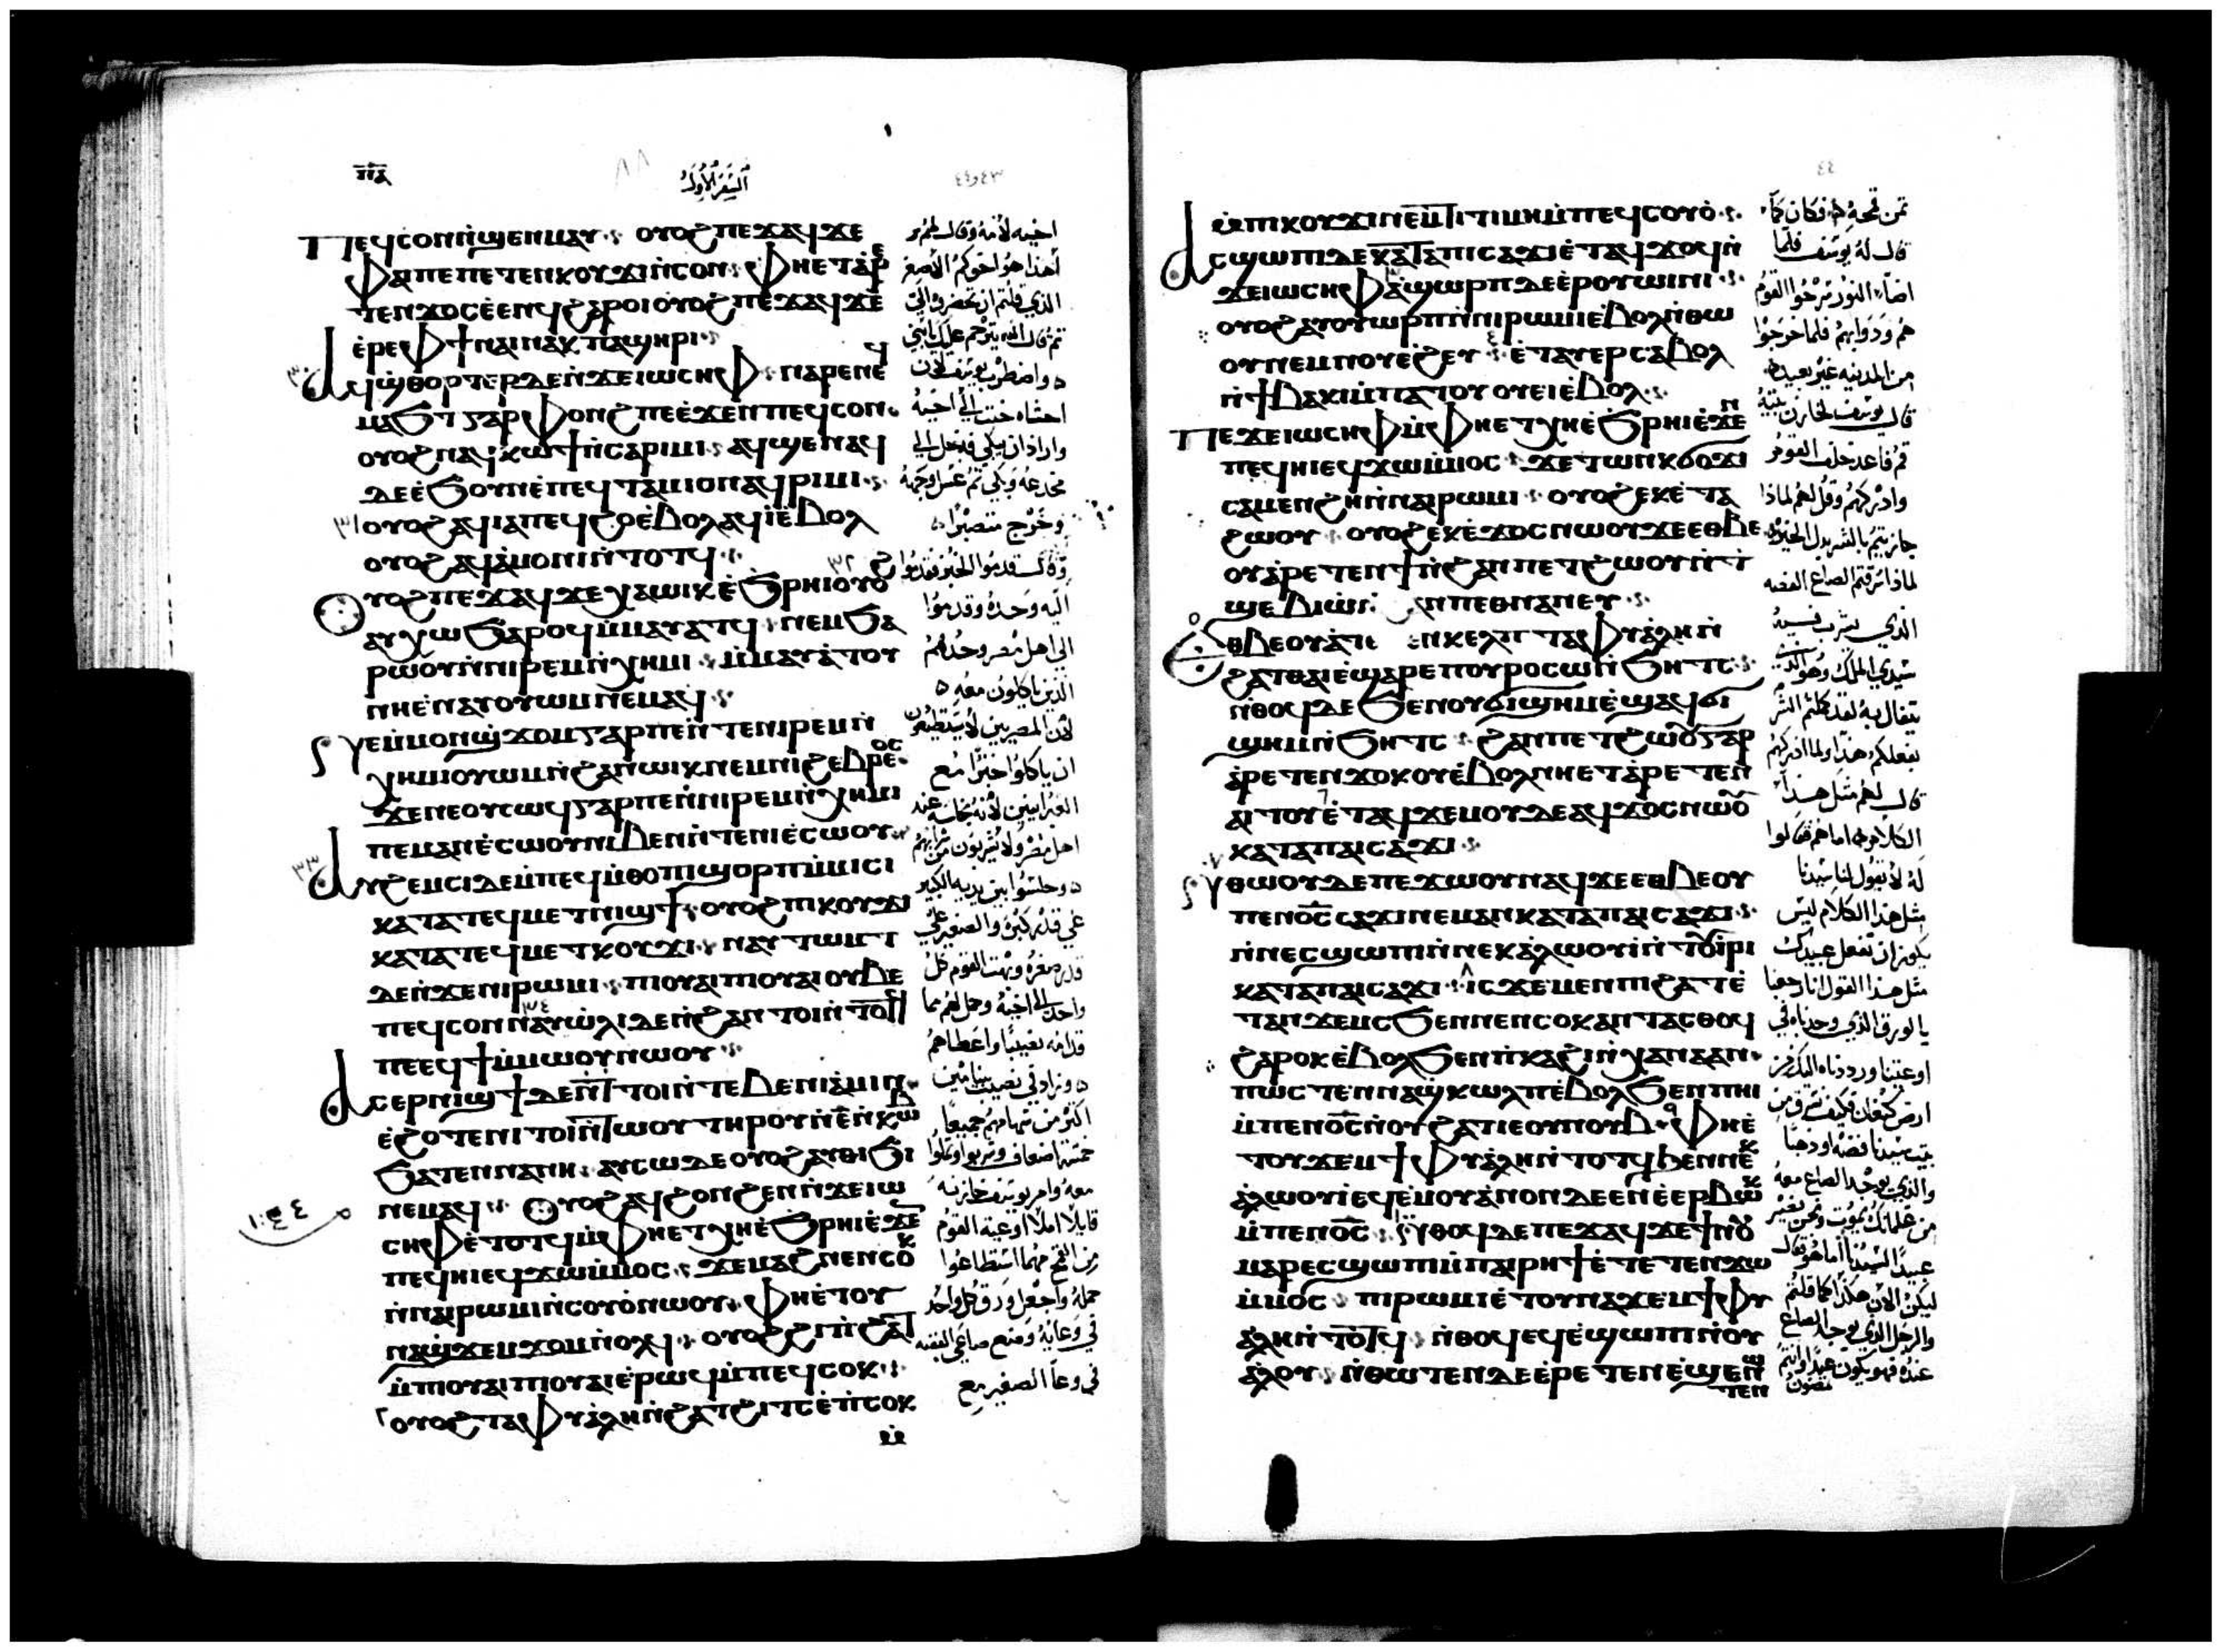 ⲡⲁ
السفر الأول
٤٣و٤٤
ⲡⲉϥⲥⲟⲛ ⲛ̀ϣⲉⲛⲙⲁⲩ ⲟⲩⲟϩ ⲡⲉϫⲁϥ ϫⲉ
ⲫⲁⲓ ⲡⲉ ⲡⲉⲧⲉⲛⲕⲟⲩϫⲓ ⲛ̀ⲥⲟⲛ ⲫⲏⲉⲧⲁⲣⲉ
ⲧⲉⲛϫⲟⲥ ⲉ̀ⲉⲛϥ ϩⲁⲣⲟⲓ ⲟⲩⲟϩ ⲡⲉϫⲁϥ ϫⲉ
ⲉ̀ⲣⲉ ⲫϯ ⲛⲁⲓ ⲛⲁⲕ ⲡⲁϣⲏⲣⲓ
ⲁϥϣⲑⲟⲣⲧⲉⲣ ⲇⲉ ⲛ̀ϫⲉ ⲓⲱⲥⲏⲫ ⲛⲁⲣⲉ ⲛⲉϥ
ⲙⲁϧⲧ ⲅⲁⲣ ⲫⲟⲛϩ ⲡⲉ ⲉ̀ϫⲉⲛ ⲡⲉϥⲥⲟⲛ
ⲟⲩⲟϩ ⲛⲁϥⲕⲱϯ ⲛ̀ⲥⲁ ⲣⲓⲙⲓ ⲁϥϣⲉ ⲛⲁϥ
ⲇⲉ ⲉ̀ϧⲟⲩⲛ ⲉ̀ⲡⲉϥⲧⲁⲙⲓⲟⲛ ⲁϥⲣⲓⲙⲓ
٣١ ⲟⲩⲟϩ ⲁϥⲓⲁ ⲡⲉϥϩⲟ ⲉ̀ⲃⲟⲗ ⲁϥⲓ̀ ⲉ̀ⲃⲟⲗ
ⲟⲩⲟϩ ⲁϥⲁ̀ⲙⲟⲛⲓ ⲛ̀ⲧⲟⲧϥ
ⲟⲩⲟϩ ⲡⲉϫⲁϥ ϫⲉ ⲭⲁ ⲱⲓⲕ ⲉ̀ϧⲣⲏⲓ ⲟⲩⲟϩ
ⲁⲩⲭⲱ ϧⲁⲣⲟϥ ⲙ̀ⲙⲁⲩⲁⲧϥ ⲛⲉⲙ ϧⲁ
ⲣⲱⲟⲩ ⲛ̀ⲛⲓⲣⲉⲙⲛ̀ⲭⲏⲙⲓ ⲙ̀ⲙⲁⲩⲁ̀ⲧⲟⲩ
ⲛⲏⲉ̀ⲛⲁⲩⲟⲩⲱⲙ ⲛⲉⲙⲁϥ
ⲛⲉ ⲙ̀ⲙⲟⲛϣϫⲟⲙ ⲅⲁⲣ ⲡⲉ ⲛ̀ⲧⲉ ⲛⲓⲣⲉⲙⲛ̀
ⲭⲏⲙⲓ ⲟⲩⲱⲙ ⲛ̀ϩⲁⲛⲱⲓⲕ ⲛⲉⲙ ⲛⲓϩⲉⲃⲣⲉⲟⲥ
ϫⲉ ⲛⲉ ⲟⲩⲥⲱϥ ⲅⲁⲣ ⲡⲉ ⲛ̀ⲛⲓⲣⲉⲙⲛ̀ⲭⲏⲙⲓ
ⲡⲉ ⲙⲁⲛⲉ̀ⲥⲱⲟⲩ ⲛⲓⲃⲉⲛ ⲛ̀ⲧⲉ ⲛⲓⲉ̀ⲥⲱⲟⲩ
٣٣ ⲁⲩϩⲉⲙⲥⲓ ⲇⲉ ⲙ̀ⲡⲉϥⲙ̀ⲑⲟ ⲡⲓϣⲟⲣⲡ ⲙ̀ⲙⲓⲥⲓ
ⲕⲁⲧⲁ ⲧⲉϥⲙⲉⲧⲛⲓϣϯ ⲟⲩⲟϩ ⲡⲓⲕⲟⲩϫⲓ
ⲕⲁⲧⲁ ⲧⲉϥⲙⲉⲧⲕⲟⲩϫⲓ ⲛⲁⲩⲧⲱⲙⲧ
ⲇⲉ ⲛ̀ϫⲉ ⲛⲓⲣⲱⲙⲓ ⲡⲓⲟⲩⲁⲓ ⲡⲓⲟⲩⲁⲓ ⲟⲩⲃⲉ
ⲡⲉϥⲥⲟⲛ ٣٤ ⲛⲁⲩⲱ̀ⲗⲓ ⲇⲉ ⲛ̀ϩⲁⲛⲧⲟⲓ ⲛ̀ⲧⲟⲧϥ
ⲡⲉ ⲉϥϯ ⲙ̀ⲙⲱⲟⲩ ⲛⲱⲟⲩ
ⲁⲥⲉⲣⲛⲓϣϯ ⲇⲉ ⲛ̀ϯⲧⲟⲓ ⲛ̀ⲧⲉ ⲃⲉⲛⲓⲁ̀ⲙⲓⲛ
ⲉ̀ϩⲟⲧⲉ ⲛⲓⲧⲟⲓ ⲛ̀ⲧⲱⲟⲩ ⲧⲏⲣⲟⲩ ⲛ̀ⲉ̄ ⲛ̀ⲕⲱⲃ
ϧⲁⲧⲉⲛ ⲛⲁⲛⲏ ⲁⲩⲥⲱ ⲇⲉ ⲟⲩⲟϩ ⲁⲩⲑⲓϧⲓ
ⲛⲉⲙⲁϥ ⲟⲩⲟϩ ⲁϥϩⲟⲛϩⲉⲛ ⲛ̀ϫⲉ ⲓⲱ
ⲥⲏⲫ ⲉ̀ⲧⲟⲧϥ ⲙ̀ⲫⲏⲉⲧⲭⲏ ⲉ̀ϧⲣⲏⲓ ⲉ̀ϫⲉⲛ
ⲡⲉϥⲏⲓ ⲉϥϫⲱ ⲙ̀ⲙⲟⲥ ϫⲉ ⲙⲁϩ ⲛⲉⲛⲥⲟⲕ
ⲛ̀ⲛⲁⲓⲣⲱⲙⲓ ⲛ̀ⲥⲟⲩⲟ̀ ⲛⲱⲟⲩ ⲫⲏⲉ̀ⲧⲟⲩ
ⲛⲁϣϫⲉⲙϫⲟⲙ ⲛ̀ⲟⲗϥ ⲟⲩⲟϩ ϩⲓ ⲡϩⲁⲧ
ⲙ̀ⲡⲓⲟⲩⲁⲓ ⲡⲓⲟⲩⲁⲓ ⲉ̀ⲣⲱϥ ⲙ̀ⲡⲉϥⲥⲟⲕ
ⲟⲩⲟϩ ⲧⲁⲫⲩⲁ̀ⲗⲏ ⲛ̀ϩⲁⲧ ϩⲓⲧⲥ ⲉ̀ⲡⲥⲟⲕ
ⲙ̀
اخيه لامه وقال لهم
أهذا هو اخوكم الاصغر
الذي قلتم ان تحضروا الي
ثم قال الله يترحم عليك ابني
واضطرب يوسف لان
احشاه حنت الى اخيه
واراد ان يبكي فدخل الى
مخدعه وبكى ثم غسل وجهه
وخرج متصبرا
وقال قدموا الخبز فقدموا
اليه وحده وقدموا
الى اهل مصر وحدهم
الذين ياكلون معه
لان المصريين لا يستطيعون
ان ياكلوا خبزا مع
العبرانيين لانه نجاسة عند
وجلسوا بين يديه الكبير
على قدر كبره والصغير على
قدر صغره وبهت القوم كل
واحد الى اخيه وحمل لهم مما
قدامه نصيبا واعطاهم
وزاد في نصيب بنيامين
اكثر من سهامهم جميعا
خمسة اضعاف وشربوا وثملوا
معه وامر يوسف خازنه
قايلا املا اوعية القوم
من القمح مهما استطاعوا
حمله واجعل ورق كل واحد
في وعايه وضع صاعي الفضه
في وعا الصغير مع
٤٤
ⲙ̀ⲡⲓⲕⲟⲩϫⲓ ⲛⲉⲙ ϯⲧⲓⲙⲏ ⲙ̀ⲡⲉϥⲥⲟⲩⲟ̀
ⲁⲥϣⲱⲡⲓ ⲇⲉ ⲕⲁⲧⲁ ⲡⲓⲥⲁϫⲓ ⲉ̀ⲧⲁϥϫⲟϥ ⲛ̀
ϫⲉ ⲓⲱⲥⲏⲫ ٣ ⲁ̀ϣⲱⲣⲡ ⲇⲉ ⲉⲣⲟⲩⲱⲓⲛⲓ
ⲟⲩⲟϩ ⲁⲩⲟⲩⲱⲣⲡ ⲛ̀ⲛⲓⲣⲱⲙⲓ ⲉ̀ⲃⲟⲗ ⲛ̀ⲑⲱ
ⲟⲩ ⲛⲉⲙ ⲛⲟⲩⲉ̀ϩⲉⲩ ٤ ⲉ̀ⲧⲁⲩⲉⲣⲥⲁⲃⲟⲗ
ⲛ̀ϯⲃⲁⲕⲓ ⲙ̀ⲡⲁⲧⲟⲩⲟⲩⲉⲓ ⲉ̀ⲃⲟⲗ
ⲡⲉϫⲉ ⲓⲱⲥⲏⲫ ⲙ̀ⲫⲏⲉⲧⲭⲏ ⲉ̀ϧⲣⲏⲓ ⲉ̀ϫⲉⲛ
ⲡⲉϥⲏⲓ ⲉϥϫⲱ ⲙ̀ⲙⲟⲥ ϫⲉ ⲧⲱⲛⲕ ϭⲟϫⲓ
ⲥⲁⲙⲉⲛϩⲏ ⲛ̀ⲛⲁⲓⲣⲱⲙⲓ ⲟⲩⲟϩ ⲉⲕⲉ̀ⲧⲁ
ϩⲱⲟⲩ ⲟⲩⲟϩ ⲉⲕⲉ̀ϫⲟⲥ ⲛⲱⲟⲩ ϫⲉ ⲉⲑⲃⲉ
ⲟⲩ ⲁ̀ⲣⲉⲧⲉⲛϯ ⲛ̀ϩⲁⲛⲡⲉⲧϩⲱⲟⲩ ⲛ̀ⲧ
ϣⲉⲃⲓⲱ ⲛ̀ϩⲁⲛⲡⲉⲑⲛⲁⲛⲉⲩ
ⲉⲑⲃⲉ ⲟⲩ ⲁ̀ⲧⲉⲧⲉⲛⲕⲉⲗⲡ ⲧⲁⲫⲩⲁ̀ⲗⲏ ⲛ̀
ϩⲁⲧ ⲑⲁⲓ ⲉ̀ϣⲁⲣⲉ ⲡⲟⲩⲣⲟ ⲥⲱ ⲛ̀ϧⲏⲧⲥ
ⲛ̀ⲑⲟϥ ⲇⲉ ϧⲉⲛ ⲟⲩϭⲓϣⲏⲙ ⲉ̀ϣⲁϥϭⲓ
ϣⲏⲙ ⲛ̀ϧⲏⲧⲥ ϩⲁⲛⲡⲉⲧϩⲱⲟⲩ ⲅⲁⲣ
ⲁ̀ⲣⲉⲧⲉⲛϫⲟⲕⲟⲩ ⲉ̀ⲃⲟⲗ ⲛⲏⲉⲧⲁ̀ⲣⲉⲧⲉⲛ
ⲁⲓⲧⲟⲩ ٦ ⲉ̀ⲧⲁϥϫⲉⲙⲟⲩ ⲇⲉ ⲁϥϫⲟⲥ ⲛⲱⲟⲩ
ⲕⲁⲧⲁ ⲡⲁⲓⲥⲁϫⲓ
ⲛ̀ⲑⲱⲟⲩ ⲇⲉ ⲡⲉϫⲱⲟⲩ ⲛⲁϥ ϫⲉ ⲉⲑⲃⲉ ⲟⲩ
ⲡⲉⲛⲟ̄ⲥ̄ ⲥⲁϫⲓ ⲛⲉⲙⲁⲛ ⲕⲁⲧⲁ ⲡⲁⲓⲥⲁϫⲓ
ⲛ̀ⲛⲉⲥϣⲱⲡⲓ ⲛ̀ⲛⲉⲕⲁ̀ⲗⲱⲟⲩⲓ̀ ⲛ̀ⲧⲟⲩⲓ̀ⲣⲓ
ⲕⲁⲧⲁ ⲡⲁⲓⲥⲁϫⲓ ٨ ⲓⲥϫⲉ ⲙⲉⲛ ⲡⲓϩⲁⲧ ⲉ̀
ⲧⲁⲛϫⲉⲙϥ ϧⲉⲛ ⲛⲉⲛⲥⲟⲕ ⲁⲛⲧⲁⲥⲑⲟϥ
ϩⲁⲣⲟⲕ ⲉ̀ⲃⲟⲗ ϧⲉⲛ ⲡ̀ⲕⲁϩⲓ ⲛ̀ⲭⲁⲛⲁⲁⲛ
ⲡⲱⲥ ⲧⲉⲛⲛⲁϣⲕⲱⲗⲡ ⲉ̀ⲃⲟⲗ ϧⲉⲛ ⲡⲏⲓ
ⲙ̀ⲡⲉⲛⲟ̄ⲥ̄ ⲛ̀ⲟⲩϩⲁⲧ ⲓⲉ ⲟⲩⲛⲟⲩⲃ ٩ ⲫⲏⲉ̀
ⲧⲟⲩϫⲉⲙ ϯⲫⲩⲁ̀ⲗⲏ ⲛ̀ⲧⲟⲧϥ ϧⲉⲛ ⲛⲉⲕ
ⲁ̀ⲗⲱⲟⲩⲓ̀ ⲉϥⲉ̀ⲙⲟⲩ ⲁ̀ⲛⲟⲛ ⲇⲉ ⲉⲛⲉ̀ⲉⲣⲃⲱⲕ
ⲙ̀ⲡⲉⲛⲟ̄ⲥ̄ ١٠ ⲛ̀ⲑⲟϥ ⲇⲉ ⲡⲉϫⲁϥ ϫⲉ ϯⲛⲟⲩ
ⲙⲁⲣⲉⲥϣⲱⲡⲓ ⲙ̀ⲡⲁⲓⲣⲏϯ ⲉ̀ⲧⲉⲧⲉⲛϫⲱ
ⲙ̀ⲙⲟⲥ ⲡⲓⲣⲱⲙⲓ ⲉ̀ⲧⲟⲩⲛⲁϫⲉⲙ ϯⲫⲩ
ⲁ̀ⲗⲏ ⲛ̀ⲧⲟⲧϥ ⲛ̀ⲑⲟϥ ⲉϥⲉ̀ϣⲱⲡⲓ ⲛ̀ⲟⲩ
ⲁ̀ⲗⲟⲩ ⲛ̀ⲑⲱⲧⲉⲛ ⲇⲉ ⲉ̀ⲣⲉⲧⲉⲛⲉ̀ϣⲉⲛⲱ
ⲧⲉⲛ
ثمن قمحه فكان كما
قال له يوسف فلما
اضا النور سرحوا القوم
هم ودوابهم فلما خرجوا
من المدينه غير بعيد
قال يوسف لخازن بيته
قم فاعد خلف القوم
وادركهم وقل لهم لماذا
جازيتم بالشر بدل الخير
لماذا سرقتم الصاع الفضه
الذي يشرب فيه
سيدي الملك وهو الذي
يتفال به لقد كملتم الشر
بفعلكم هذا ولما ادركهم
قال لهم مثل هذا
الكلام اما هم فقالوا
له لا تقول لنا سيدنا
مثل هذا الكلام ليس
يكون ان تفعل عبيدك
مثل هذا القول انا رجعنا
بالورق الذي وجدناه في
اوعيتنا ورددناه اليك من
ارض كنعان فكيف نسرق من
بيت سيدنا فضه او ذهبا
والذي يوجد الصاع معه
من غلمانك يموت ونحن نصير
عبيدا لسيدنا اما هو فقال
ليكن الان هكذا كما قلتم
والرجل الذي يوجد الصاع
عنده فهو يكون عبدا وانتم
تمضون